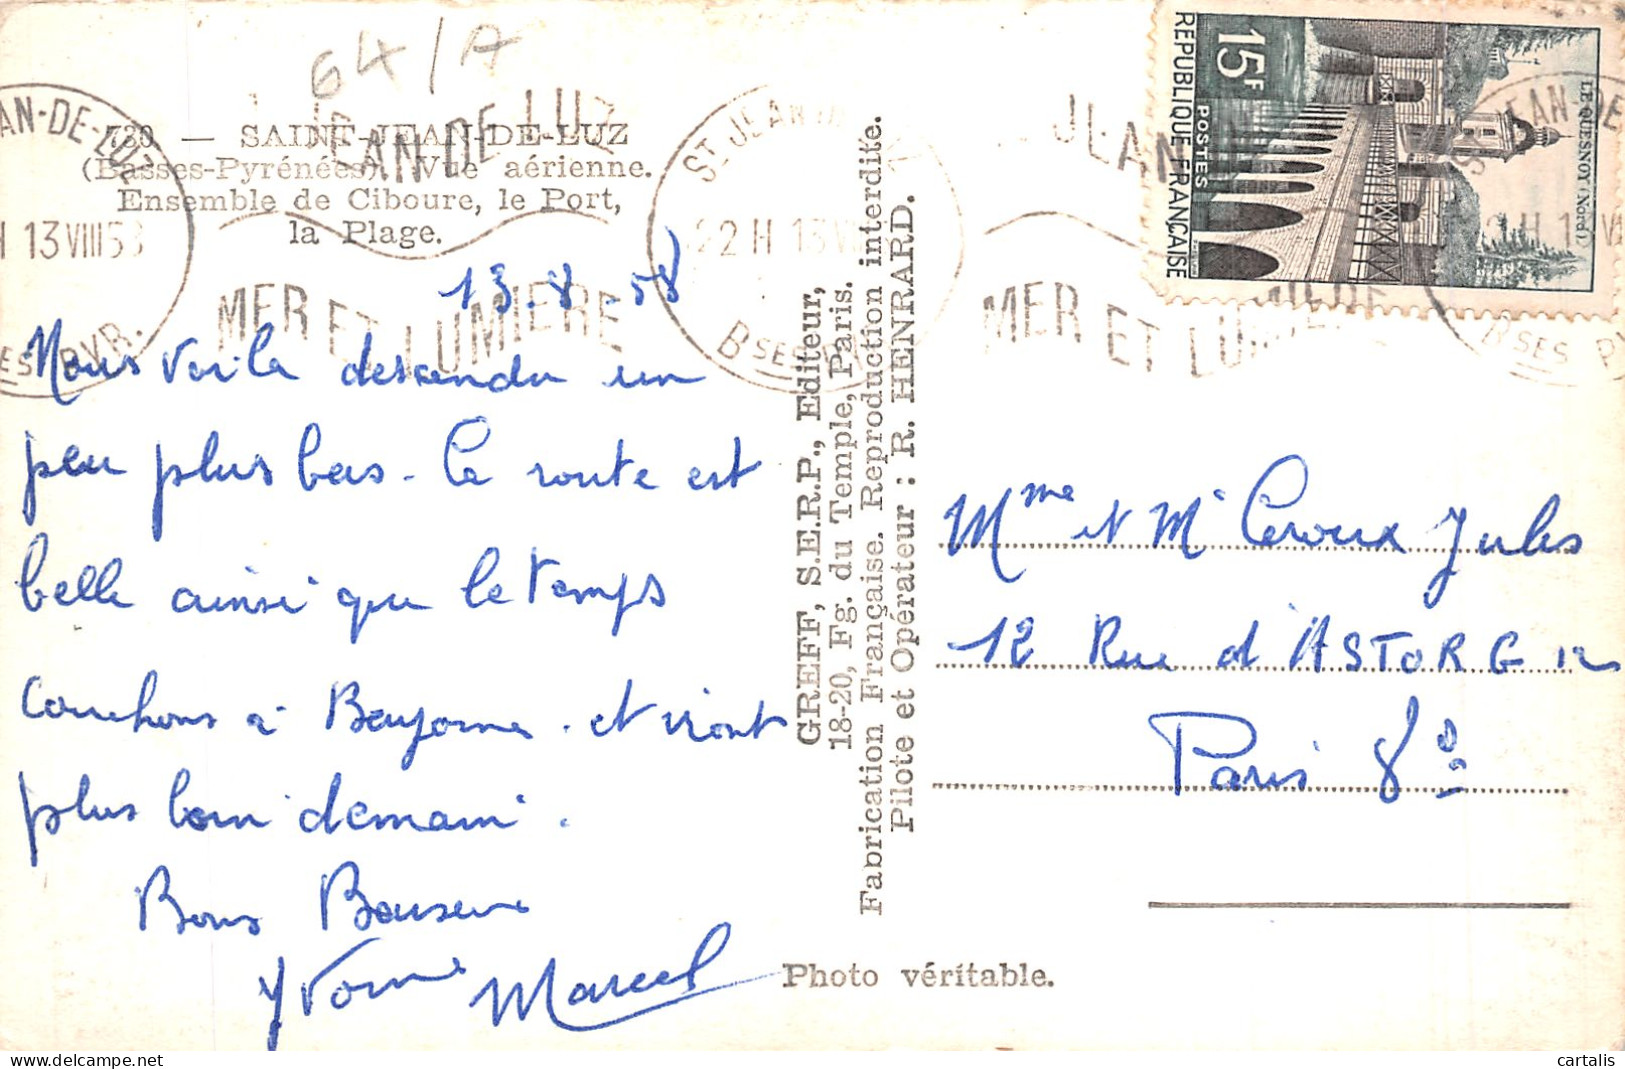 64/A
730 — SAINT-JEAN-DE-LUZ
(Basses-Pyrénées) Vue aérienne.
Ensemble de Ciboure, le Port,
la Plage.
JEAN DE LUZ
MER ET LUMIERE
EAN-DE-LUZ
H 13 VIII 58
ES PYR.
ST JEAN
22 H 13 VI
BSES
JEAN
MER ET LUMIERE
EAN-DE
BSES PY
15F
POSTES
REPUBLIQUE FRANÇAISE
LE QUESNOY (Nord)
13.8.58
Nous voila descendu un
peu plus bas. La route est
belle ainsi que le temps
couchons à Bayonne. et iront
plus loin demain.
Bons Baisers
Yvonne Marcel
GREFF, S.E.R.P., Editeur,
18-20, Fg. du Temple, Paris.
Fabrication Française. Reproduction interdite.
Pilote et Opérateur : R. HENRARD.
Photo véritable.
Mme et Mr Leroux Jules
12 Rue d'ASTORG
Paris 8e
cartalis